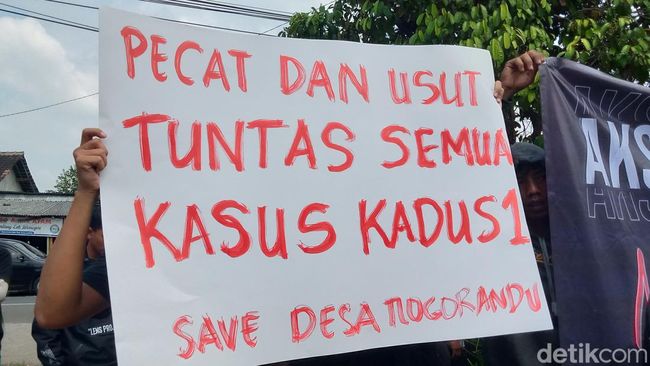 PECAT DAN USUT
TUNTAS SEMUA
KASUS KADUS 1
SAVE DESA TLOGORANDU
AKS
detikcom